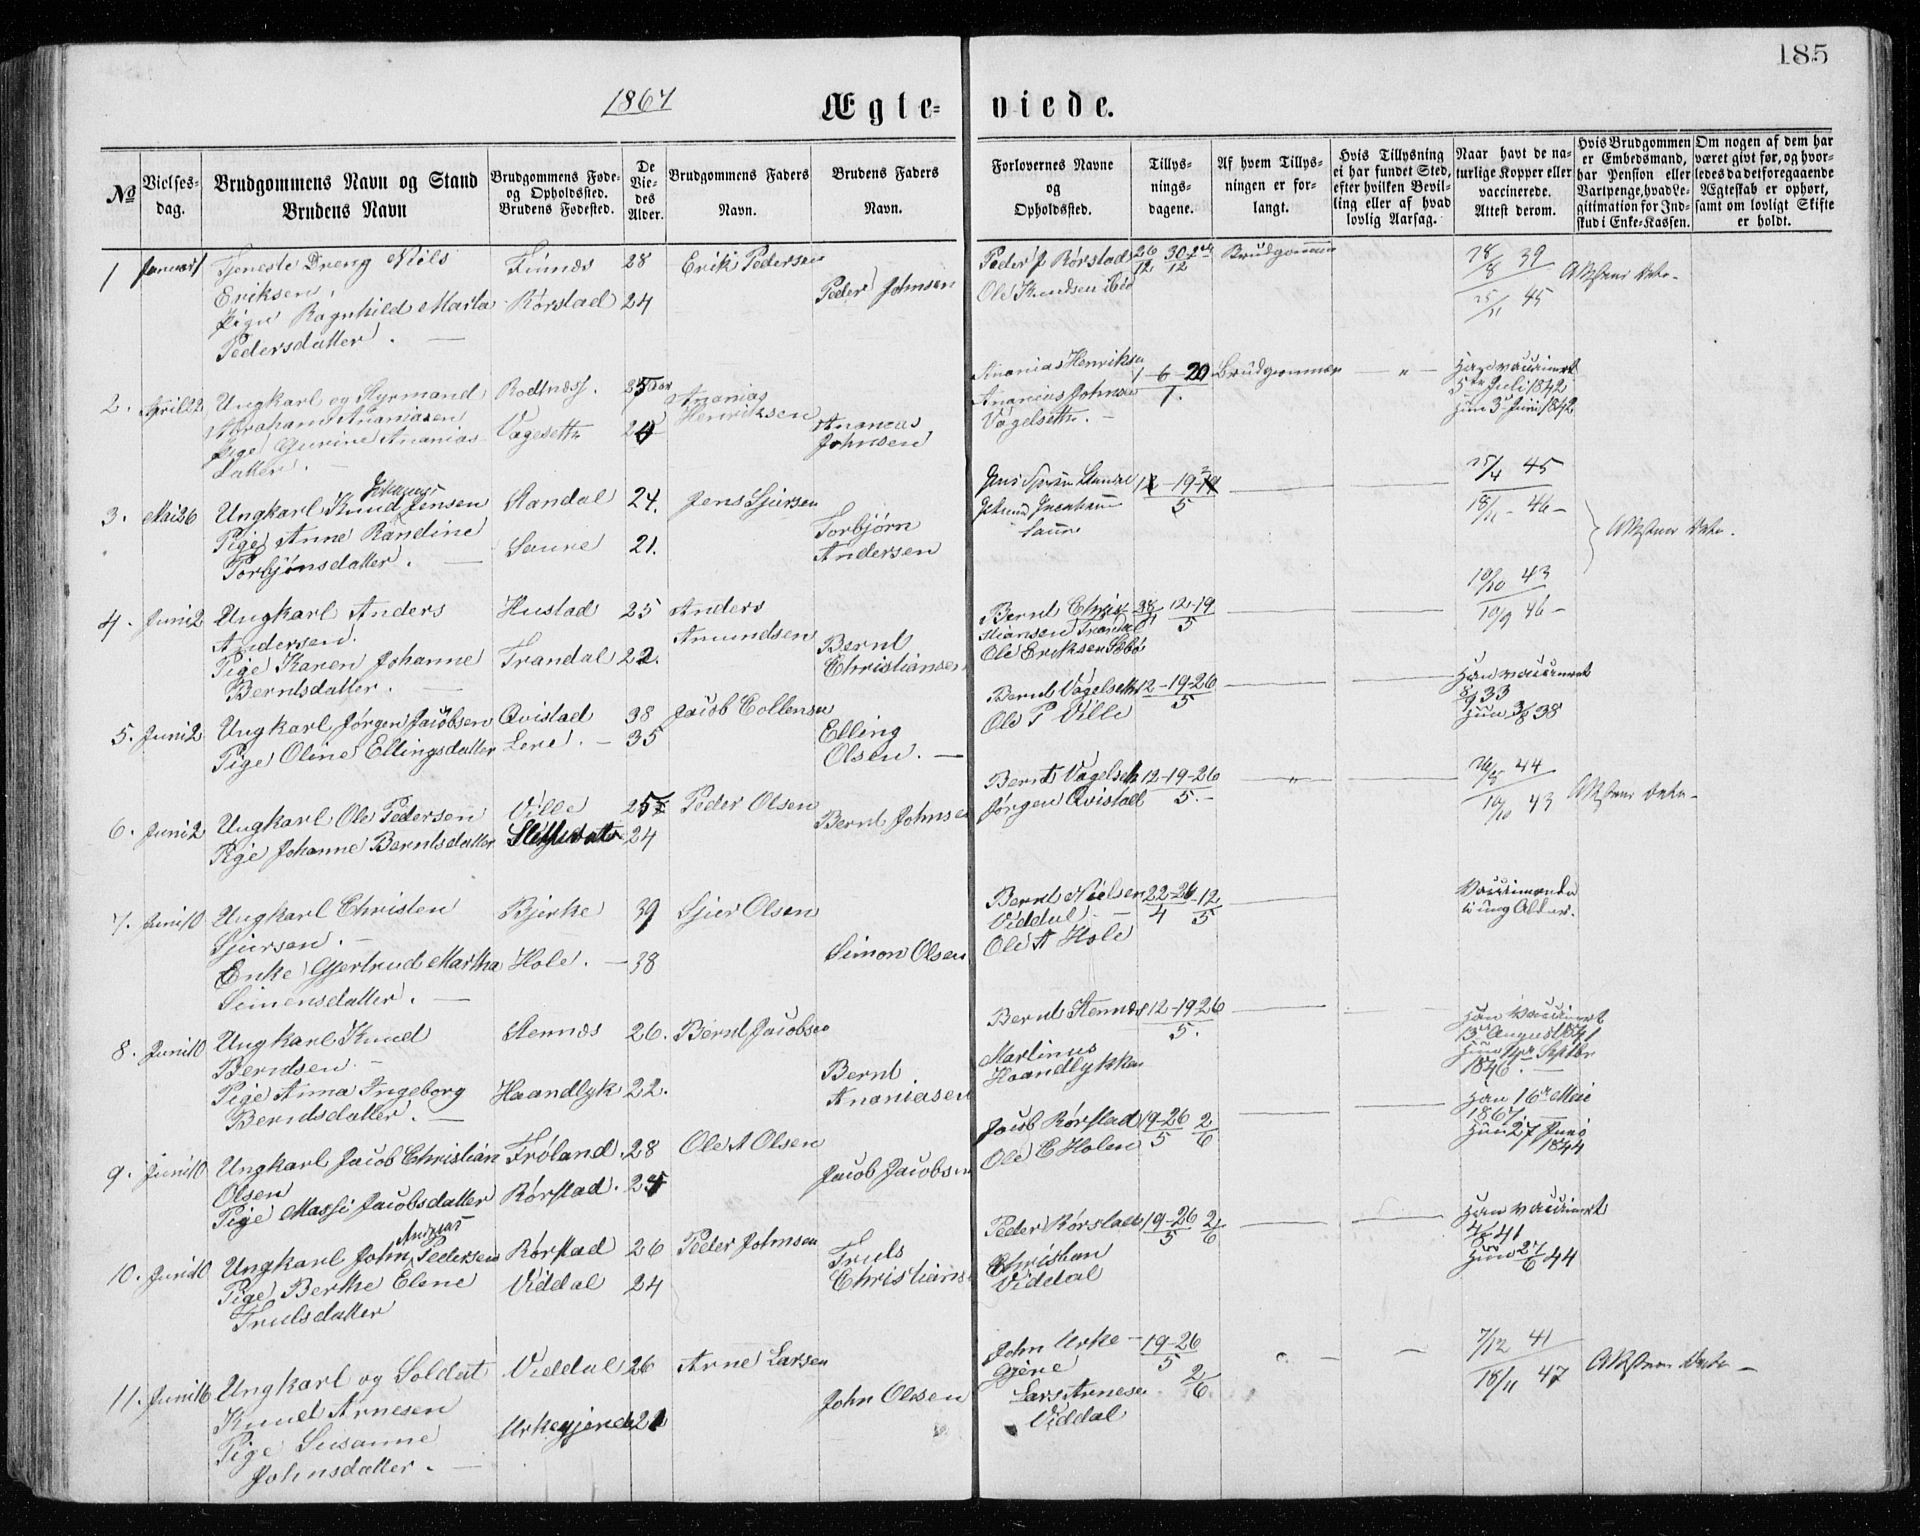 185
1867
Ægte-
viede.
No
Vielses-
dag.
Brudgommens Navn og Stand
Brudens Navn
Brudgommens Føde-
og Opholdssted.
Brudens Fødested.
De
Vie-
des
Alder.
Brudgommens Faders
Navn.
Brudens Faders
Navn.
Forlovernes Navne
og
Opholdssted.
Tillys-
nings-
dagene.
Af hvem Tillys-
ningen er for-
langt.
Hvis Tillysning
ei har fundet Sted,
efter hvilken Bevil-
ling eller af hvad
lovlig Aarsag.
Naar havt de na-
turlige Kopper eller
vaccinerede.
Attest derom.
Hvis Brudgommen
er Embedsmand,
har Pension eller
Vartpenge, hvad Le-
gitimation for Ind-
skud i Enke-Kassen.
Om nogen af dem har
været gift før, og hvor-
ledes da det foregaaende
Ægteskab er ophørt,
samt om lovligt Skifte
er holdt.
1 Januar 1 Tjeneste Dreng Nils Finnæs 28 Erik Pedersen
Eriksen,
Pige Ragnhild Marta Rørstad 24 Peder Johnsen
Pedersdatter. —
Peder J Rørstad 26 30 Brudgommen 28/8 39
Ole Knudsen ibid 12 12 25/11 45
2. April 22 Ungkarl og Styrmand 35 Aar Ananias
Abraham Ananiasen Henriksen
Pige Gurine Ananias- Vagesett Ananias
datter. — Johnsen
Ananias Henriksen 1-6-20 Brudgommen — „ — Han vaccineret
Ananias Johnsen 1. 5te Juli 1842
Vagelsett. - Hun 3 Juni 1842
3. Mai 26 Ungkarl Knud Johannes Jensen Standal 24. Jens Sjursen
Pige Anne Randine Saure 21. Torbjørn
Torbjønsdatter. — Andersen
5
Saure
25/4 45
18/11 - 46 -
4. Juni 2 Ungkarl Anders Hustad 25 Anders
Andersen. Amundsen
Pige Karen Johanne Trandal 22. Bernt
Berntsdatter. — Christiansen
Bernt Chris- 12-19
tiansen Trandal 5
Ole Eriksen Sæbø
10/10 43
10/9 46 -
5. Juni 2 Ungkarl Jørgen Jacobsen Qvistad 38 Jacob Collensen
Pige Oline Ellingsdatter Lere. - 35 Elling
Olsen. —
Bernt Vagelsett 12-19-26
Ole P Ville 5
Han vaccineret
8/9 33
Hun 3/8 38
6. Juni 2 Ungkarl Ole Pedersen Ville 25 Peder Olsen
Pige Johanne Berntsdatter 24 Bernt Johnsen
Bernt Vagelset 12-19-26 — „ —
Jørgen Qvistad 5. -
26/5 44
10/10 43
7. Juni 10 Ungkarl Christen Bjerke 39 Sjur Olsen
Sjursen. —
Enke Gjertrud Martha Hole. — 38 Simon Olsen
Simensdatter. —
Bernt Nielsen 22-26-12
Viddal. — 4 5
Ole A Hole
i ung Alder.
8. Juni 10 Ungkarl Knud Stennæs 26. Bernt Jacobsen
Berndsen. —
Pige Anna Ingeborg Haandlyk 22. Bernt
Berndsdatter. — Ananiasen
Bernt Stennæs 12-19-26
5.
Martinus
Haandlykken
Han vaccineret
13de August 1841
Hun Septbr
1846. —
9. Juni 10 Ungkarl Jacob Christian Frøland. 28 Ole A Olsen
Olsen
Pige Massi Jacobsdatter Rørstad. Jacob Jacobsen
Jacob Rørstad 19-26 2
Ole E Holen 5 6
Han 16de Mai
1867 —
Hun 27 Juni
1844
10. Juni 10 Ungkarl John Andreas Pedersen Rørstad 26 Peder Johnsen
Pige Berthe Elene Viddal 24 Truls
Trulsdatter Christians
Peder Rørstad 19-26 2
5 6
Christian
Viddal
Han vaccineret
41
Hun 27/6 44
11. Juni 16 Ungkarl og Soldat Viddal 26 Arne Larsen
Knud Arnesen
Pige Susanne Urkegjerde 21 John Olsen
Johnsdatter. —
John Urke- 19-26
gjere 5 2
Lars Arnesen 6
Viddal
7/12 41
18/11 47